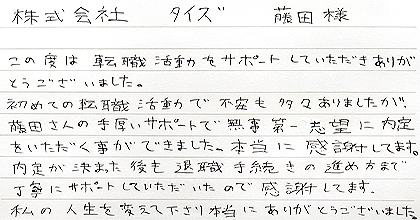 株式会社 タイズ 藤田様
この度は 転職活動をサポートしていただきありが
とうございました。
初めての転職活動で不安も多々ありましたが、
藤田さんの手厚いサポートで無事第一志望に内定
をいただく事ができました。本当に感謝してます。
内定が決まった後も退職手続きの進め方まで
丁寧にサポートしていただいたので感謝してます。
私の人生を変えて下さり本当にありがとうございました